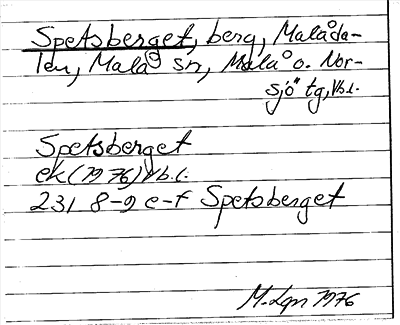 Spetsberget, berg, Malåda-
len, Malå sn, Malå o. Nor-
sjö tg, Vb.l.
Spetsberget
ek (1976) Vb.l.
231 8-9 e-f Spetsberget
M. Lgn 1976